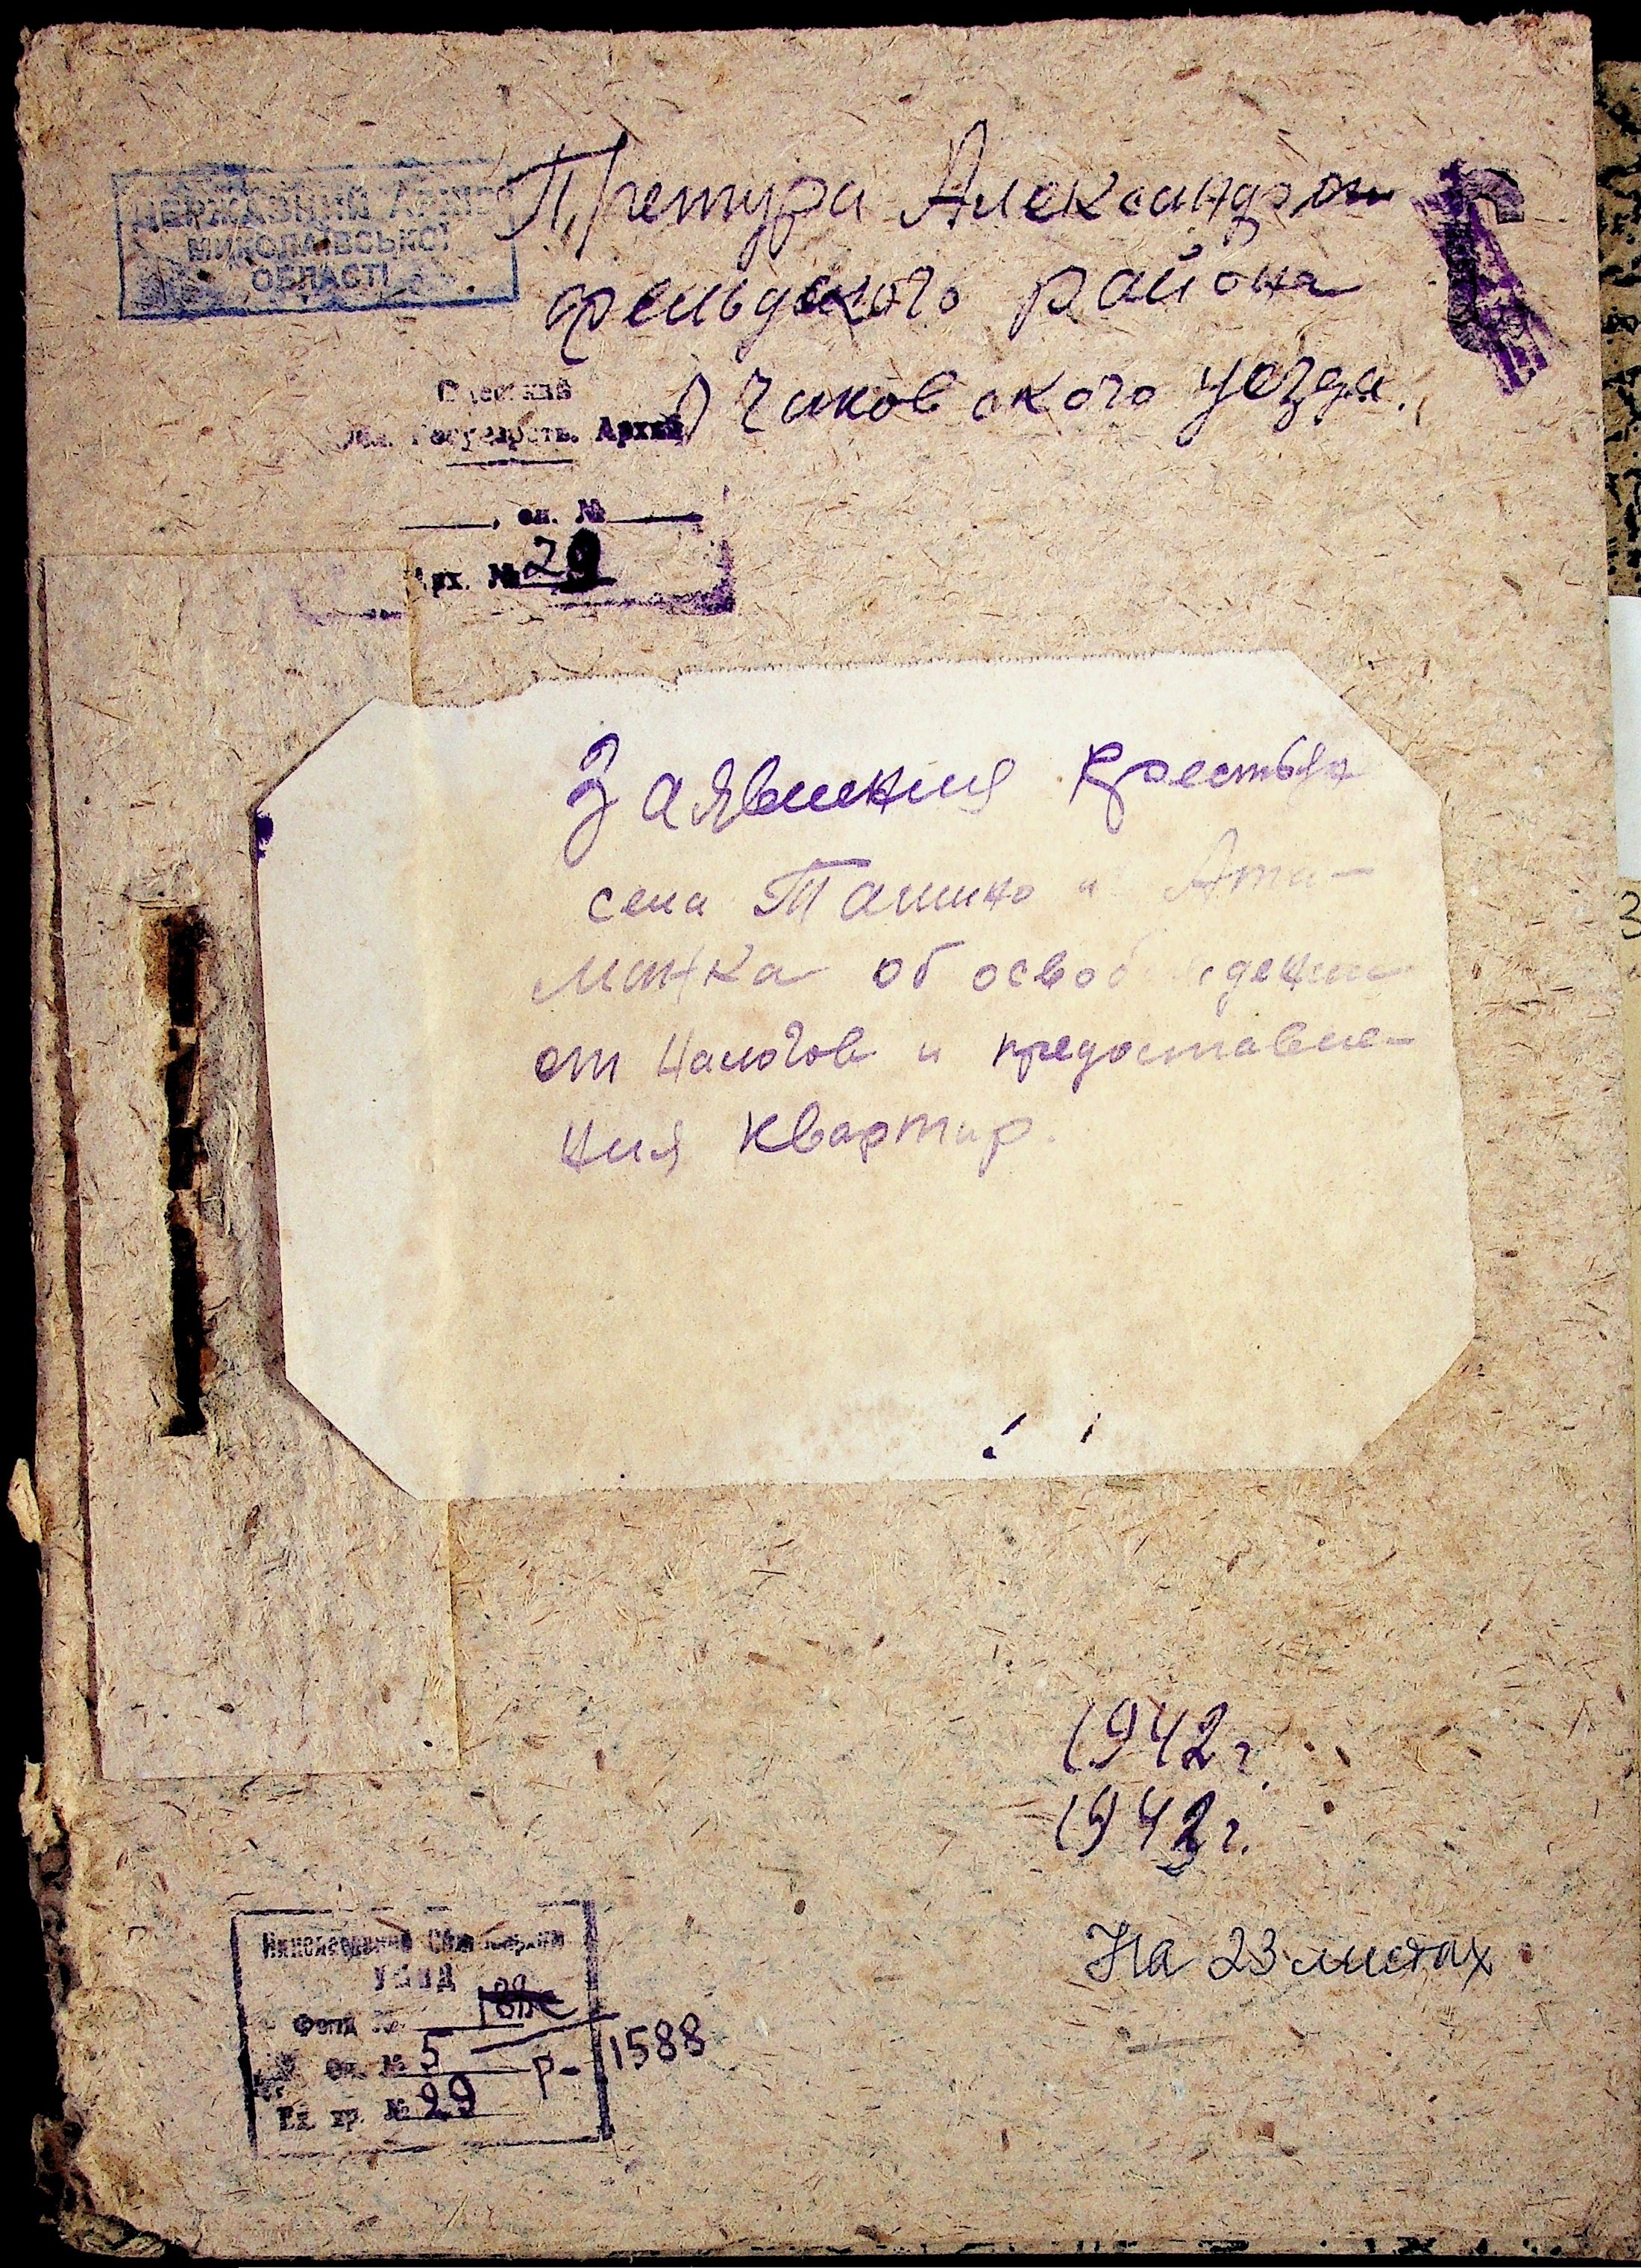 ДЕРЖАВНИЙ АРХІВ
МИКОЛАЇВСЬКОЇ
ОБЛАСТІ
Претура Александро
фельдского района
Очаковского уезда.
Одесский
Обл. Государств. Архив
, оп. №
Арх. № 29
Заявления крестьян
села Ташино и Ата-
манка об освобождении
от налогов и предоставле-
ния квартир.
1942 г.
1943 г.
На 23 листах
Николаевский Облгосархив
УМВД
Фонд №
Оп. № 5 Р-1588
Ед. хр. № 29